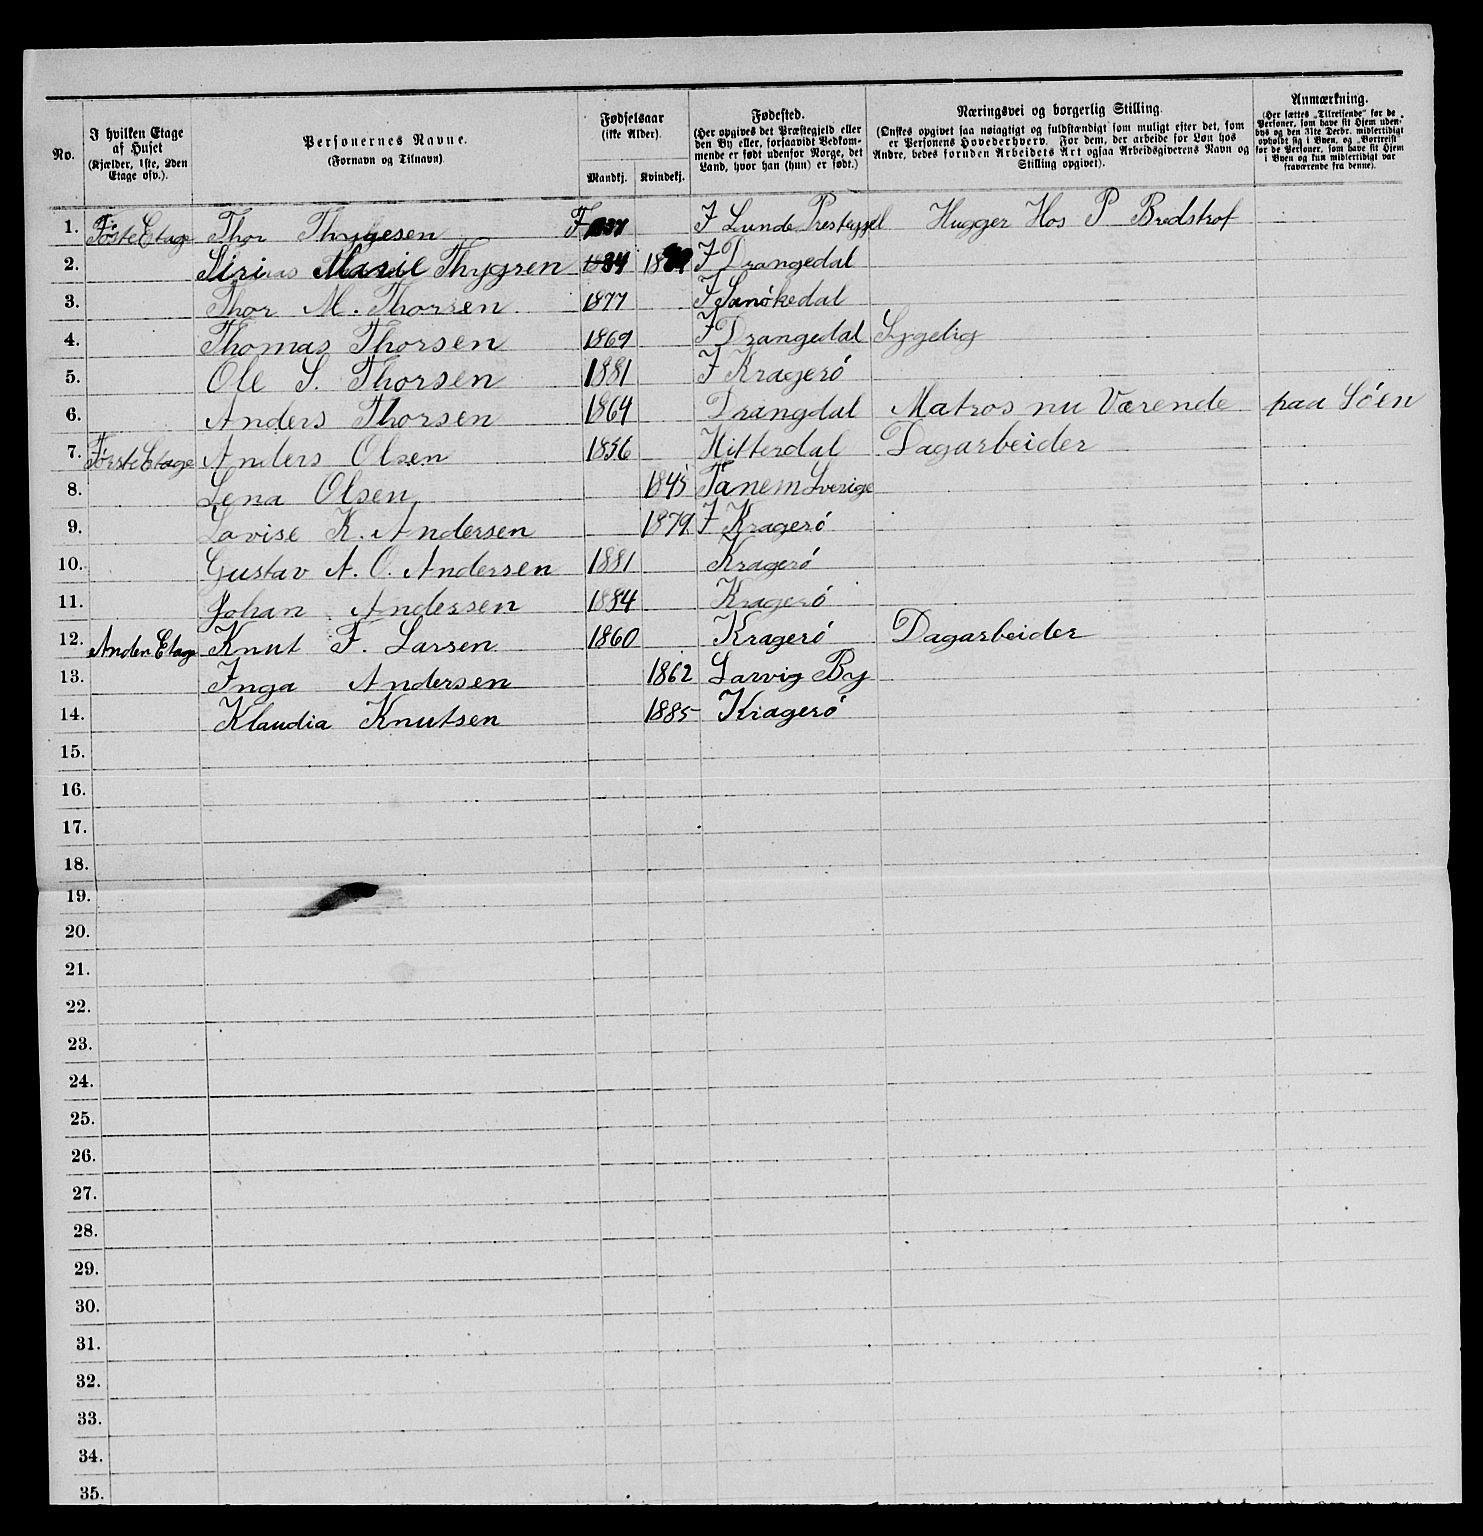 No.
I hvilken Etage af Huset (Kjælder, 1ste, 2den Etage osv.).
Personernes Navne.
(Fornavn og Tilnavn).
Fødselsaar
(ikke Alder).
Mandkj. Kvindekj.
Fødested.
(Her opgives det Præstegjeld eller
den By eller, forsaavidt Vedkom-
mende er født udenfor Norge, det
Land, hvor han (hun) er født.)
Næringsvei og borgerlig Stilling.
(Ønskes opgivet saa nøiagtigt og fuldstændigt som muligt efter det, som
er Personens Hovederhverv. For dem, der arbeide for Løn hos
Andre, bedes foruden Arbeidets Art ogsaa Arbeidsgiverens Navn og
Stilling opgivet).
Anmærkning.
(Her sættes „Tilreisende“ for de
Personer, som have sit Hjem uden-
bys og den 31te Decbr. midlertidigt
opholdt sig i Byen, og „Bortreist“
for de Personer, som have sit Hjem
i Byen og kun midlertidigt var
fraværende fra denne).
1. Thor Thygesen F I Lunde Hugger Hos P
2. Marie Thygesen 1834 I Drangedal
3. Thor M. Thorsen 1877 I Sanökedal
4. Thomas Thorsen 1869 I Drangedal Sygelig
5. Ole S. Thorsen 1881 I Kragerö
6. Anders Thorsen 1864 Drangdal Matros nu Værende paa Söen
7. Første Etage Anders Olsen 1856 Hitterdal Dagarbeider
8. Lena Olsen 1845 Tanem Sverige
9. Lovise K. Andersen 1879 I Kragerö
10. Gustav A. O. Andersen 1881 Kragerö
11. Johan Andersen 1884 Kragerö
12. Anden Etage Knut F. Larsen 1860 Kragerö Dagarbeider
13. Inga Andersen 1862 Larvig By
14. Klaudia Knutsen 1885 Kragerö
15.
16.
17.
18.
19.
20.
21.
22.
23.
24.
25.
26.
27.
28.
29.
30.
31.
32.
33.
34.
35.